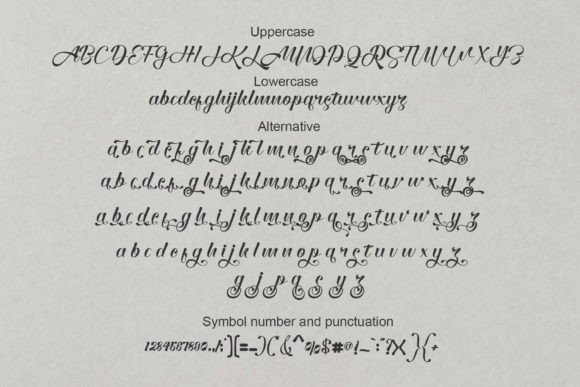 Uppercase
ABCDEFGHIJKLMNOPQRSTUVWXYZ
Lowercase
abcdefghijklmnopqrstuvwxyz
Alternative
a b c d e f g h i j k l m n o p q r s t u v w x y z
a b c d e f g h i j k l m n o p q r s t u v w x y z
a b c d e f g h i j k l m n o p q r s t u v w x y z
a b c d e f g h i j k l m n o p q r s t u v w x y z
g j p q s y z
Symbol number and punctuation